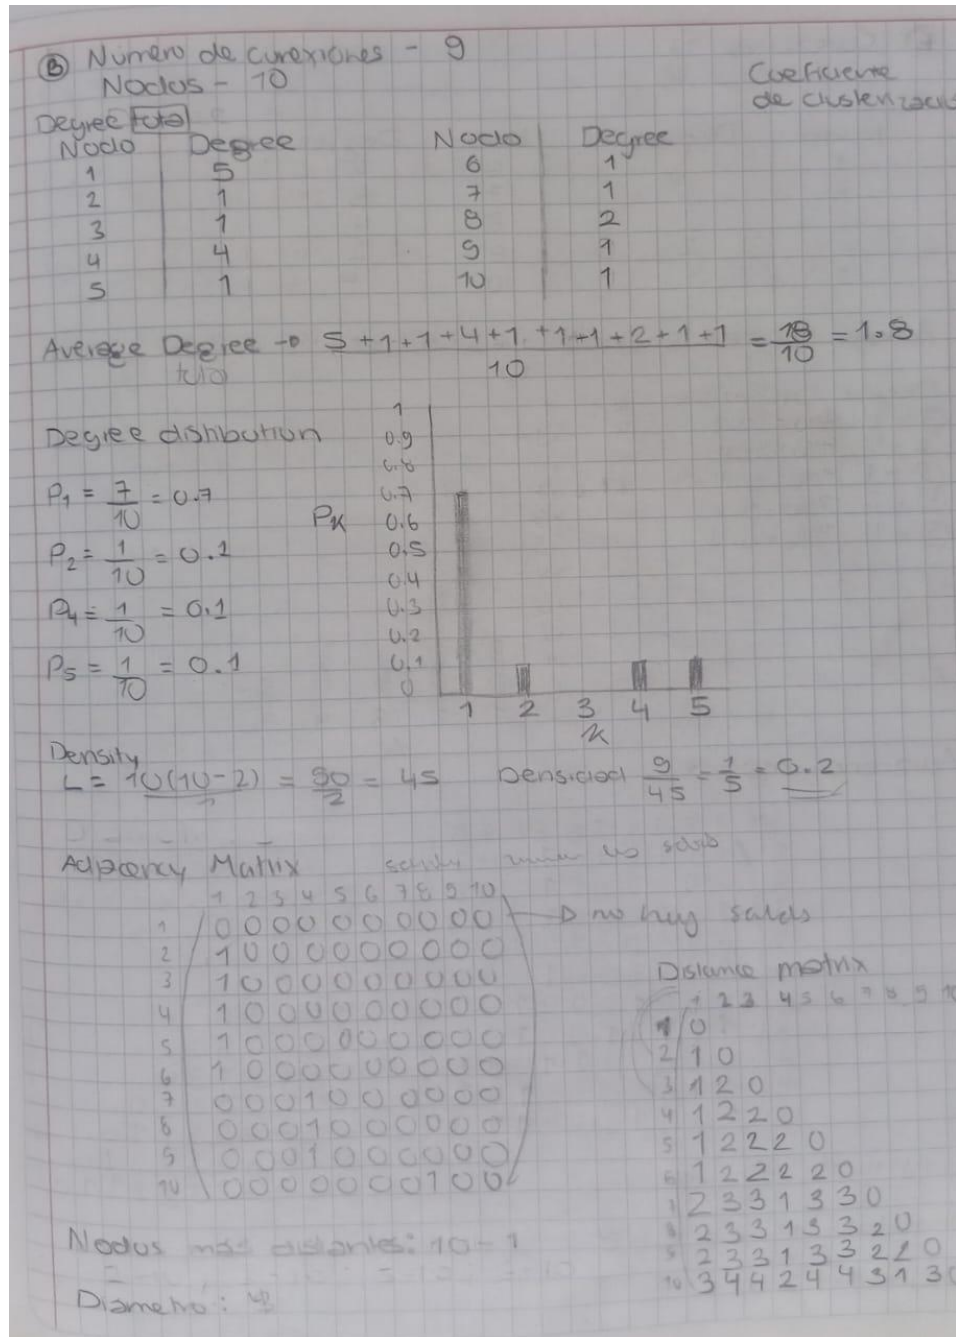 B Número de conexiones - 9
Nodos - 10
Coeficiente
de clusterizaci
Degree total
Nodo Degree Nodo Degree
1 5 6 1
2 1 7 1
3 1 8 2
4 4 9 1
5 1 10 1
Average Degree → 5+1+1+4+1+1+1+2+1+1 / 10 = 18/10 = 1.8
total
Degree distribution
P1 = 7/10 = 0.7
P2 = 1/10 = 0.1
P4 = 1/10 = 0.1
P5 = 1/10 = 0.1
PK
1
0.9
0.8
0.7
0.6
0.5
0.4
0.3
0.2
0.1
0
1 2 3 4 5
K
Density
L = 10(10-2)/2 = 90/2 = 45 Densidad 9/45 = 1/5 = 0.2
Adjacency Matrix
1 2 3 4 5 6 7 8 9 10
1 0 0 0 0 0 0 0 0 0 0 → no hay salids
2 1 0 0 0 0 0 0 0 0 0
3 1 0 0 0 0 0 0 0 0 0
4 1 0 0 0 0 0 0 0 0 0
5 1 0 0 0 0 0 0 0 0 0
6 1 0 0 0 0 0 0 0 0 0
7 0 0 0 1 0 0 0 0 0 0
8 0 0 0 1 0 0 0 0 0 0
9 0 0 0 1 0 0 0 0 0 0
10 0 0 0 0 0 0 0 1 0 0
Distance matrix
1 2 3 4 5 6 7 8 9 10
1 0
2 1 0
3 1 2 0
4 1 2 2 0
5 1 2 2 2 0
6 1 2 2 2 2 0
7 2 3 3 1 3 3 0
8 2 3 3 1 3 3 2 0
9 2 3 3 1 3 3 2 2 0
10 3 4 4 2 4 4 3 1 3 0
Nodos más distantes: 10-1
Diametro: 4